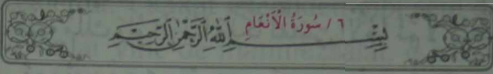 ٦ / سُورَةُ الْأَنْعَامِ
بِسْمِ اللَّهِ الرَّحْمَٰنِ الرَّحِيمِ